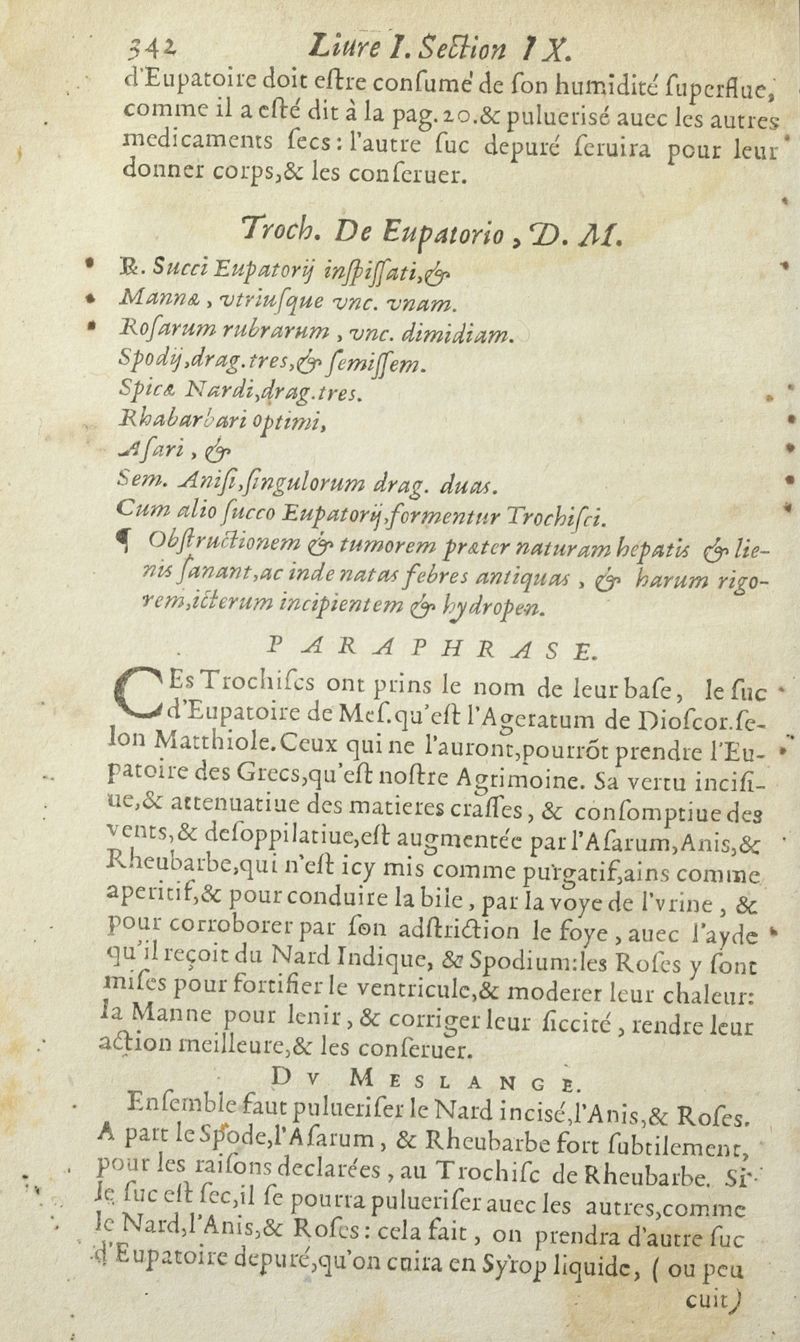 342 Liure I. Section IX.
d'Eupatoire doit eſtre conſumé de ſon humidité ſuperfluë,
comme il a eſté dit à la pag. 20.& puluerisé auec les autres
medicaments ſecs: l'autre ſuc depuré ſeruira pour leur
donner corps,& les conſeruer.
Troch. De Eupatorio , D. M.
℞. Succi Eupatorij inſpiſſati,&
Mannæ , vtriuſque vnc. vnam.
Roſarum rubrarum , vnc. dimidiam.
Spodij,drag.tres,& ſemiſſem.
Spicæ Nardi,drag.tres.
Rhabarbari optimi,
Aſari , &
Sem. Aniſi,ſingulorum drag. duas.
Cum alio ſucco Eupatorij,formentur Trochiſci.
¶ Obſtructionem & tumorem præter naturam hepatis & lie-
nis ſanant,ac inde natas febres antiquas , & harum rigo-
rem,icterum incipientem & hydropen.
PARAPHRASE.
CEs Trochiſcs ont prins le nom de leur baſe, le ſuc
d'Eupatoire de Meſ.qu'eſt l'Ageratum de Dioſcor.ſe-
lon Matthiole.Ceux qui ne l'auront,pourrõt prendre l'Eu-
patoire des Grecs,qu'eſt noſtre Agrimoine. Sa vertu inciſi-
ue,& attenuatiue des matieres craſſes, & conſomptiue des
vents,& deſoppilatiue,eſt augmentée par l'Aſarum,Anis,&
Rheubarbe,qui n'eſt icy mis comme purgatif,ains comme
aperitif,& pour conduire la bile , par la voye de l'vrine , &
pour corroborer par ſon adſtriction le foye , auec l'ayde
qu'il reçoit du Nard Indique, & Spodium:les Roſes y ſont
miſes pour fortifier le ventricule,& moderer leur chaleur:
la Manne pour lenir, & corriger leur ſiccité , rendre leur
action meilleure,& les conſeruer.
DV MESLANGE.
Enſemble faut puluerifer le Nard incisé,l'Anis,& Roſes.
A part le Spode,l'Aſarum , & Rheubarbe fort ſubtilement,
pour les raiſons declarées , au Trochiſc de Rheubarbe. Si
le ſuc eſt ſec,il ſe pourra puluerifer auec les autres,comme
le Nard,l'Anis,& Roſes: cela fait, on prendra d'autre ſuc
d'Eupatoire depuré,qu'on cuira en Syrop liquide, ( ou peu
cuit)